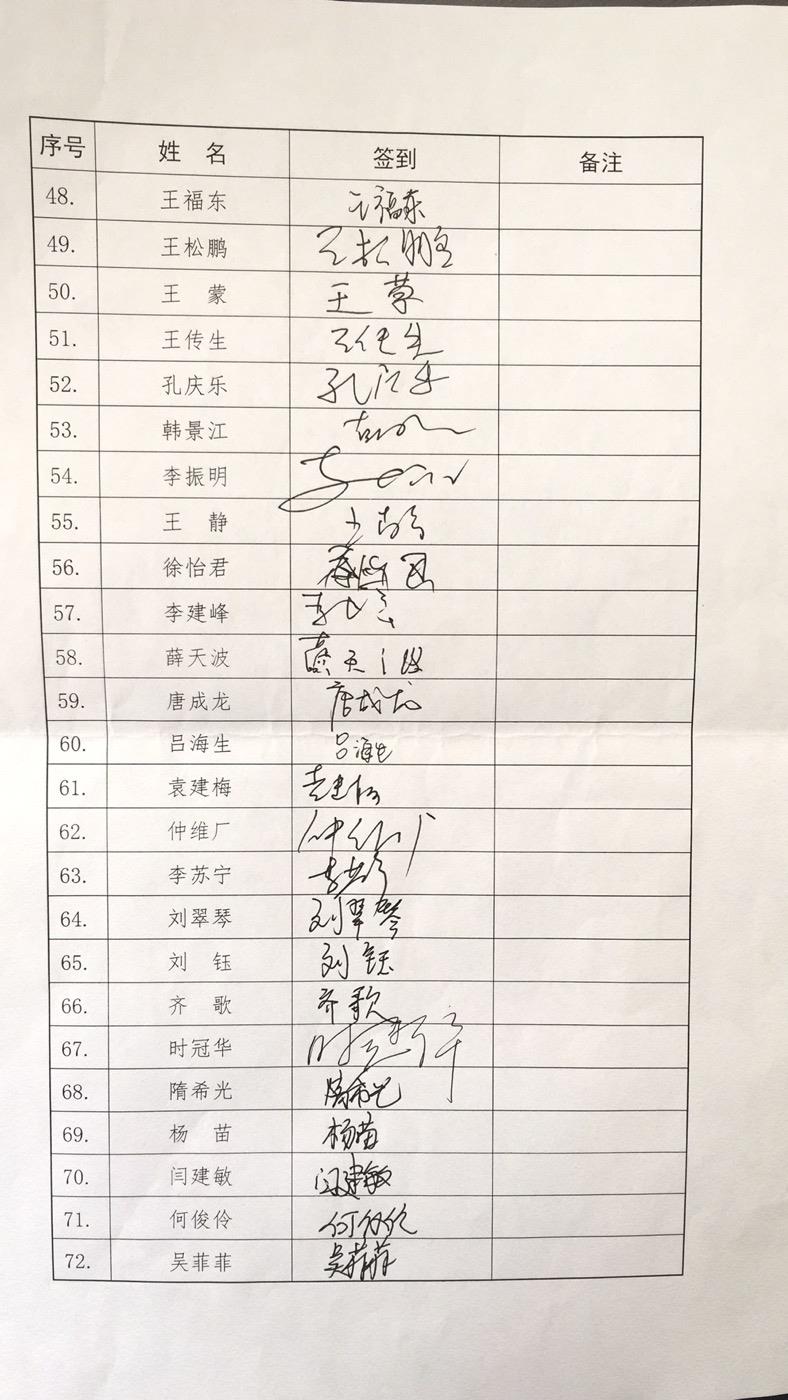 序号 姓 名 签到 备注
48. 王福东 王福东
49. 王松鹏 王松鹏
50. 王 蒙 王蒙
51. 王传生 王传生
52. 孔庆乐 孔庆乐
53. 韩景江
54. 李振明
55. 王 静 王静
56. 徐怡君
57. 李建峰
58. 薛天波 薛天波
59. 唐成龙 唐成龙
60. 吕海生 吕海生
61. 袁建梅 袁建梅
62. 仲维厂 仲维厂
63. 李苏宁 李苏宁
64. 刘翠琴 刘翠琴
65. 刘 钰 刘钰
66. 齐 歌 齐歌
67. 时冠华
68. 隋希光 隋希光
69. 杨 苗 杨苗
70. 闫建敏 闫建敏
71. 何俊伶 何俊伶
72. 吴菲菲 吴菲菲